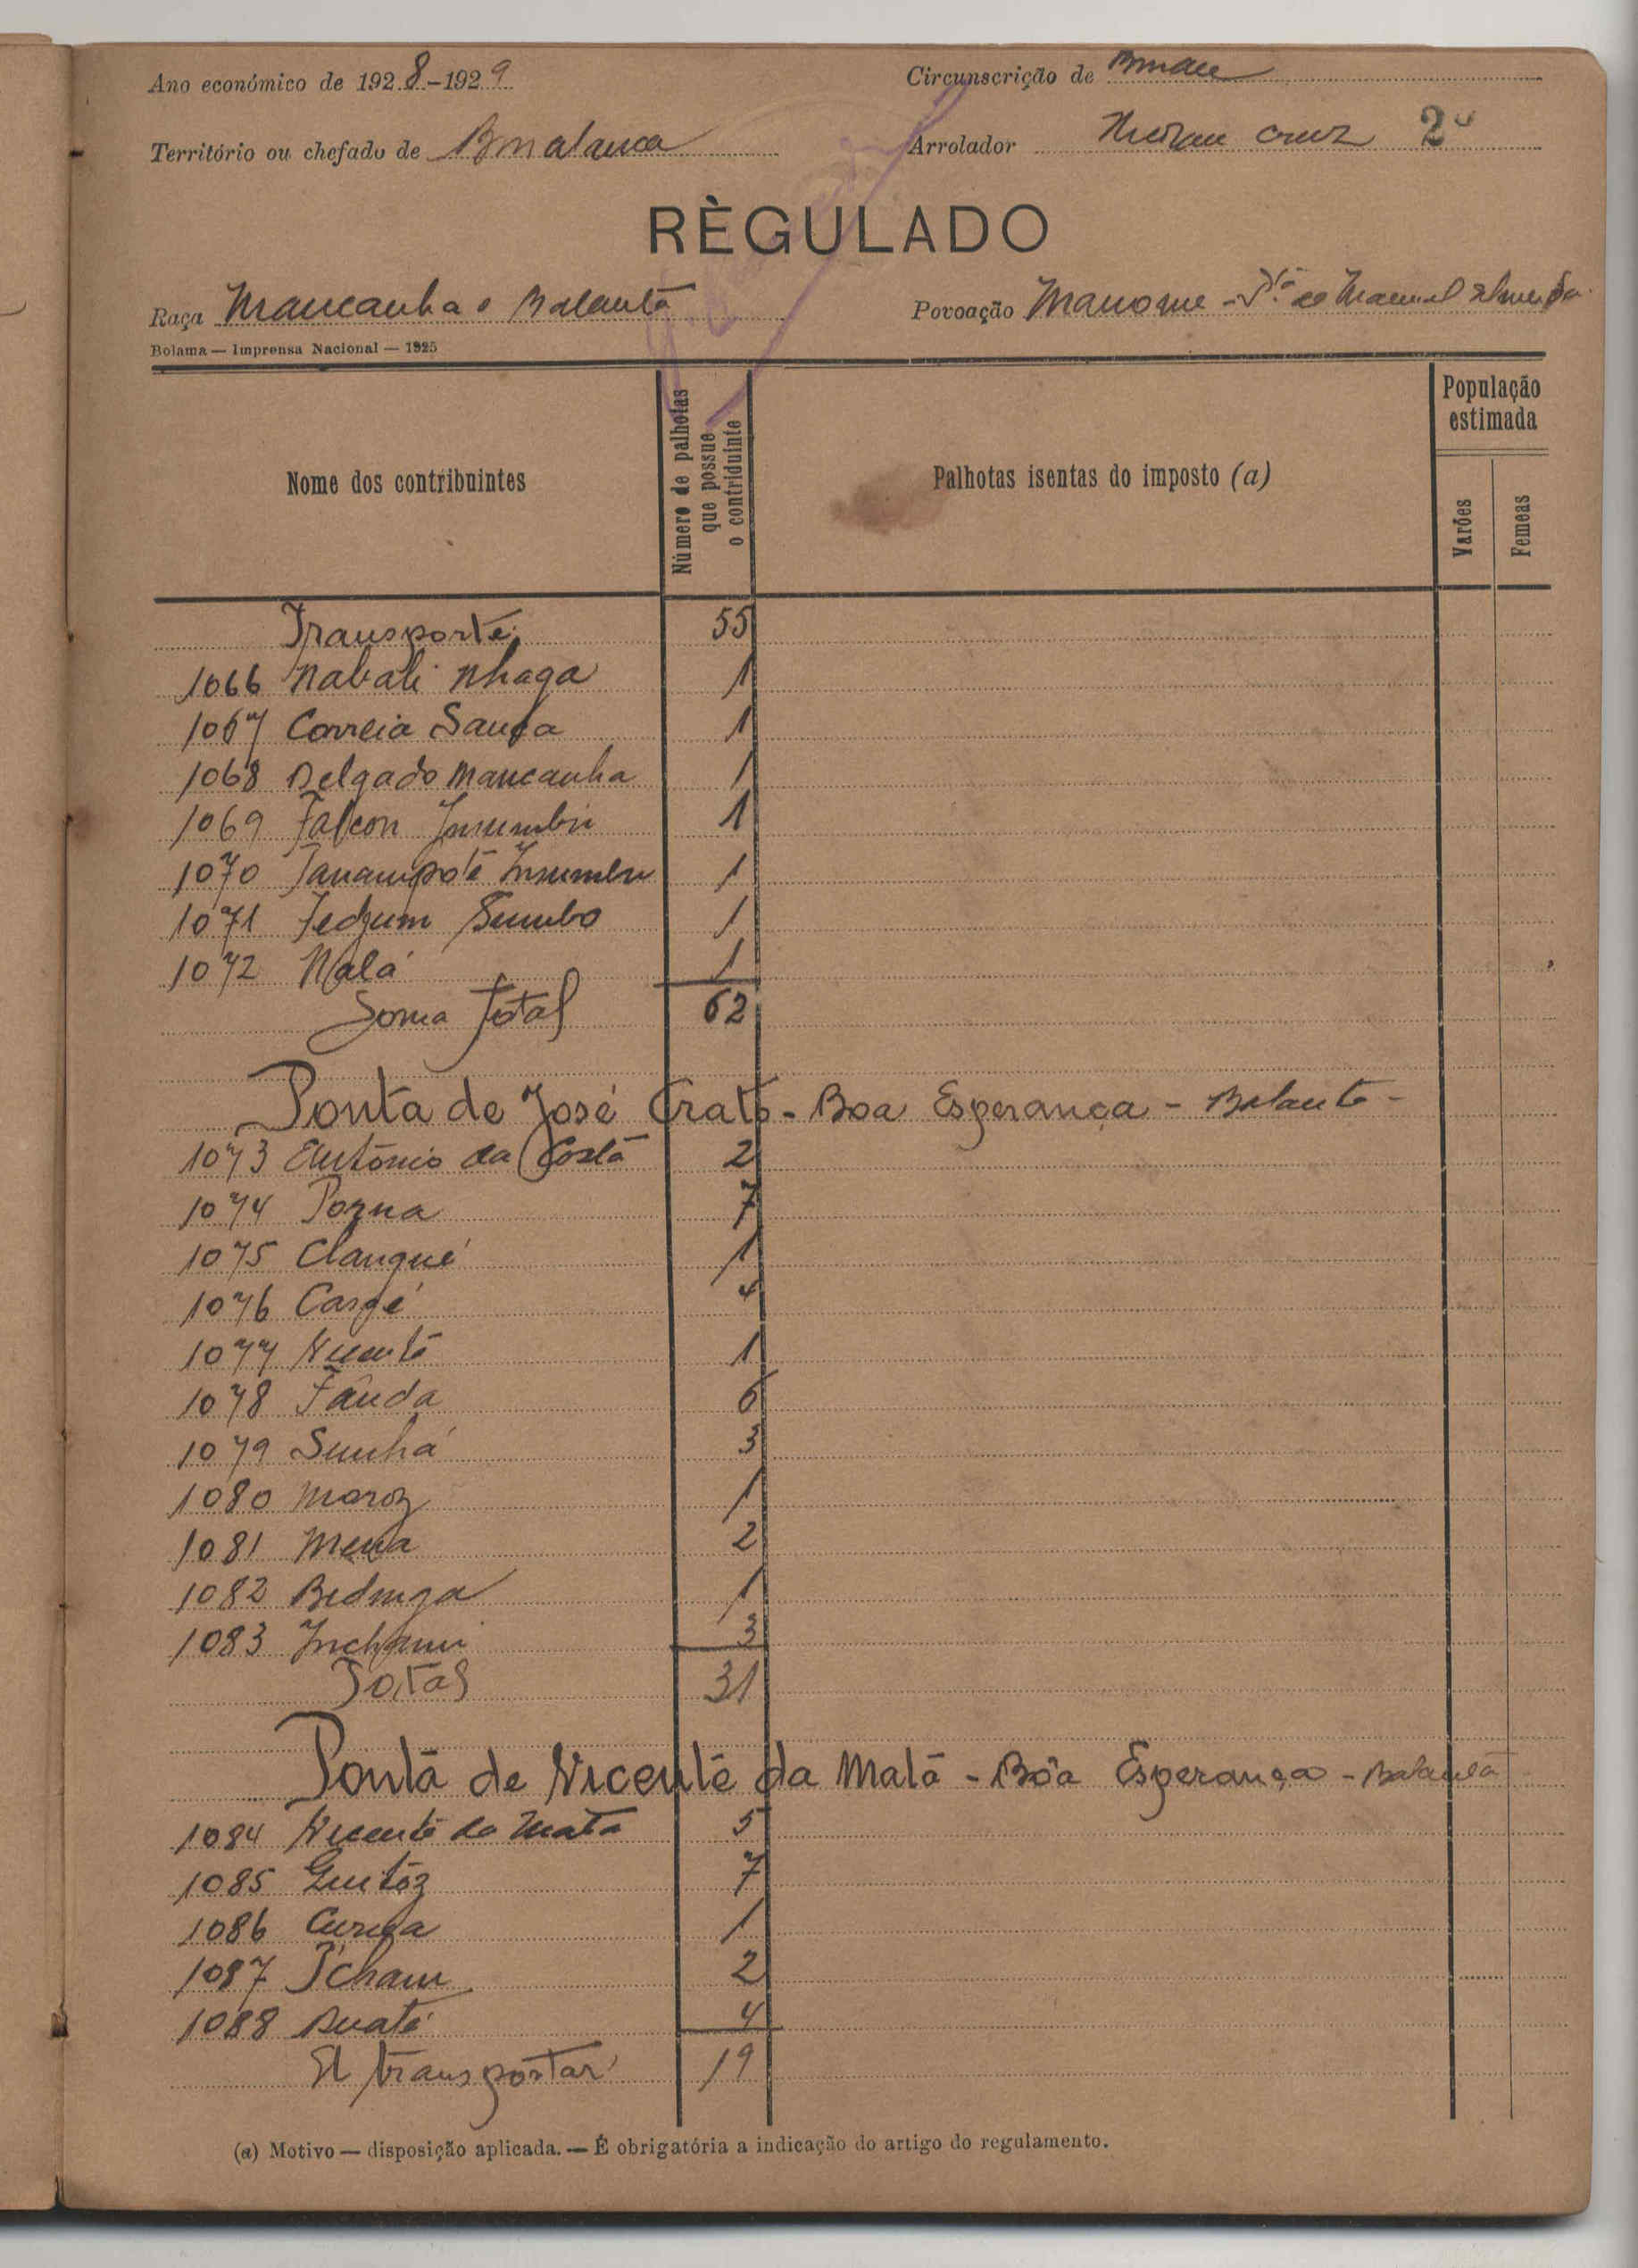 Ano económico de 1928-1929
Circunscrição de Bissau
Território ou chefado de
Arrolador Cruz 2º
RÈGULADO
Raça Mancanha e Balanta
Povoação de Manuel Almeida
Bolama — Imprensa Nacional — 1925
Nome dos contribuintes
Número de palhotas que possue o contriduinte
Palhotas isentas do imposto (a)
População estimada
Varões
Femeas
Transporte 55
1066 Nabali Nhaga 1
1067 Correia 1
1068 Delgado Mancanha 1
1069 Falcon 1
1070 1
1071 1
1072 Nalá 1
Soma Total 62
Ponta de José Crato - Boa Esperança - Balanta -
1073 António da Costa 2
1074 Pozna 7
1075 Clanqué 1
1076 4
1077 Vicente 1
1078 Fânda 6
1079 Sunhá 3
1080 Moroz 1
1081 Mena 2
1082 1
1083 3
Total 31
Ponta de Vicente da Mata - Bôa Esperança - Balanta
1084 Vicente da Mata 5
1085 7
1086 1
1087 2
1088 4
A transportar 19
(a) Motivo — disposição aplicada. — É obrigatória a indicação do artigo do regulamento.